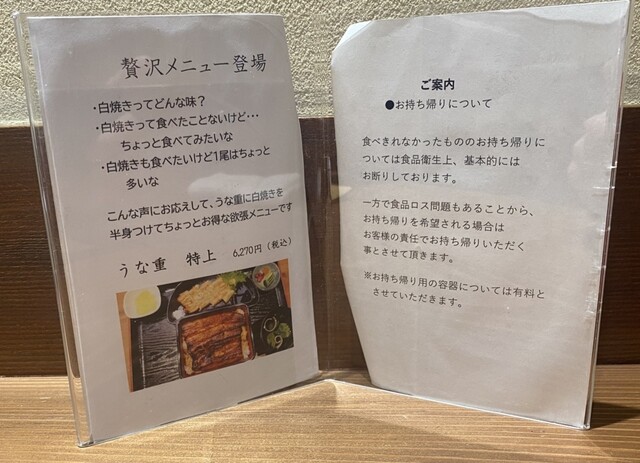 贅沢メニュー登場
・白焼きってどんな味？
・白焼きって食べたことないけど…
ちょっと食べてみたいな
・白焼きも食べたいけど1尾はちょっと
多いな
こんな声にお応えして、うな重に白焼きを
半身つけてちょっとお得な欲張メニューです
うな重 特上 6,270円（税込）
ご案内
●お持ち帰りについて
食べきれなかったもののお持ち帰りに
ついては食品衛生上、基本的には
お断りしております。
一方で食品ロス問題もあることから、
お持ち帰りを希望される場合は
お客様の責任でお持ち帰りいただく
事とさせて頂きます。
※お持ち帰り用の容器については有料と
させていただきます。